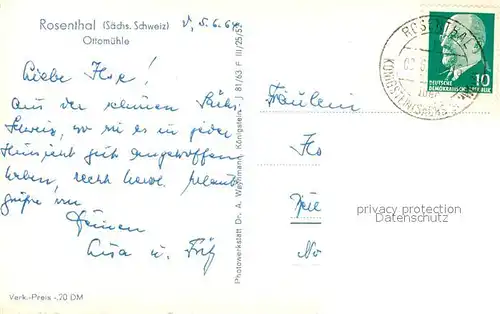 Rosenthal (Sächs. Schweiz)
Ottomühle
5.6.64
Liebe
aus der schönen Sächs.
Schweiz, wo wir es in jeder
Hinsicht gut angetroffen
haben, recht herzl. Urlaubs
grüße von
Deinen
Lisa u. Fritz
Verk.-Preis -.20 DM
Photowerkstatt Dr. A. Weynmann, Königstein. J 81/63 F III/25/53
ROSENTHAL
KÖNIGSTEIN (SÄCHS
DEUTSCHE
DEMOKRATISCHE REPUBLIK
10
Fräulein
privacy protection
Datenschutz